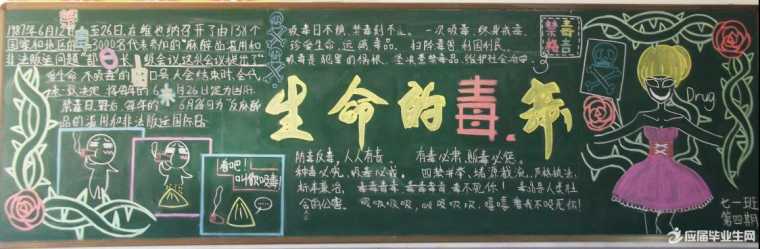 禁毒日由来
1987年6月12日至26日在维也纳召开了由138个
国家和地区的3000名代表参加的"麻醉品滥用和
非法贩运问题"部长级会议这次会议提出了"
爱生命 不吸毒的"口号
大会结束时,会代
定将每年的6月26日定为国际
禁毒日
每年的
6月26日为反麻醉
品的滥用和非法贩运国际日。
吸毒日不横,禁毒刻不
一次吸毒,终身戒毒。
珍爱生命,远离毒品。 扫除毒害 利国利民
吸毒是犯罪的祸根
禁毒贩毒品,维护社会治安
禁毒
格言
生命的毒杀
防毒反毒,人人有责。 有毒必肃,贩毒必惩。
种毒必究,吸毒必戒。 四禁并举、堵源截流、严格执法、
标本兼治。 毒毒毒毒 毒死你! 毒品是人类社
会的公害。 吸吸吸吸,吸吸吸吸,嘻嘻看我不吸死你!
看吧!
叫你吸毒!
Drug
七一班
第四期
应届毕业生网